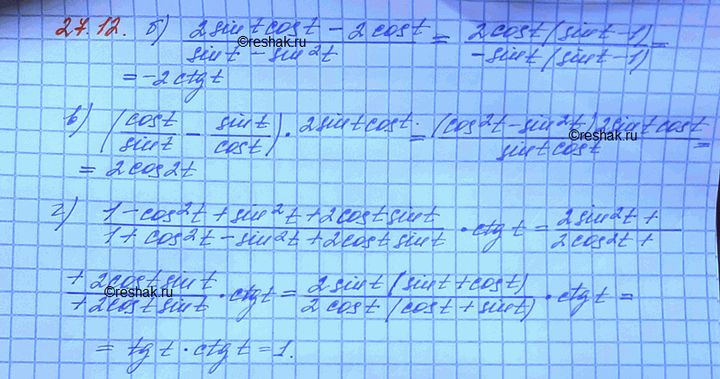 27.12. б) (2sint cost − 2cost)/(sint − sin²t) = (2cost(sint−1))/(−sint(sint−1)) =
©reshak.ru
= −2ctgt
в) (cost/sint − sint/cost) · 2sint cost = ((cos²t − sin²t) 2sint cost)/(sint cost) =
©reshak.ru
= 2cos2t
г) (1−cos²t + sin²t + 2cost sint)/(1+cos²t − sin²t + 2cost sint) · ctgt = (2sin²t +)/(2cos²t +)
(+ 2cost sint)/(+ 2cost sint) · ctgt = (2sint(sint+cost))/(2cost(cost+sint)) · ctgt =
©reshak.ru
= tgt · ctgt = 1.